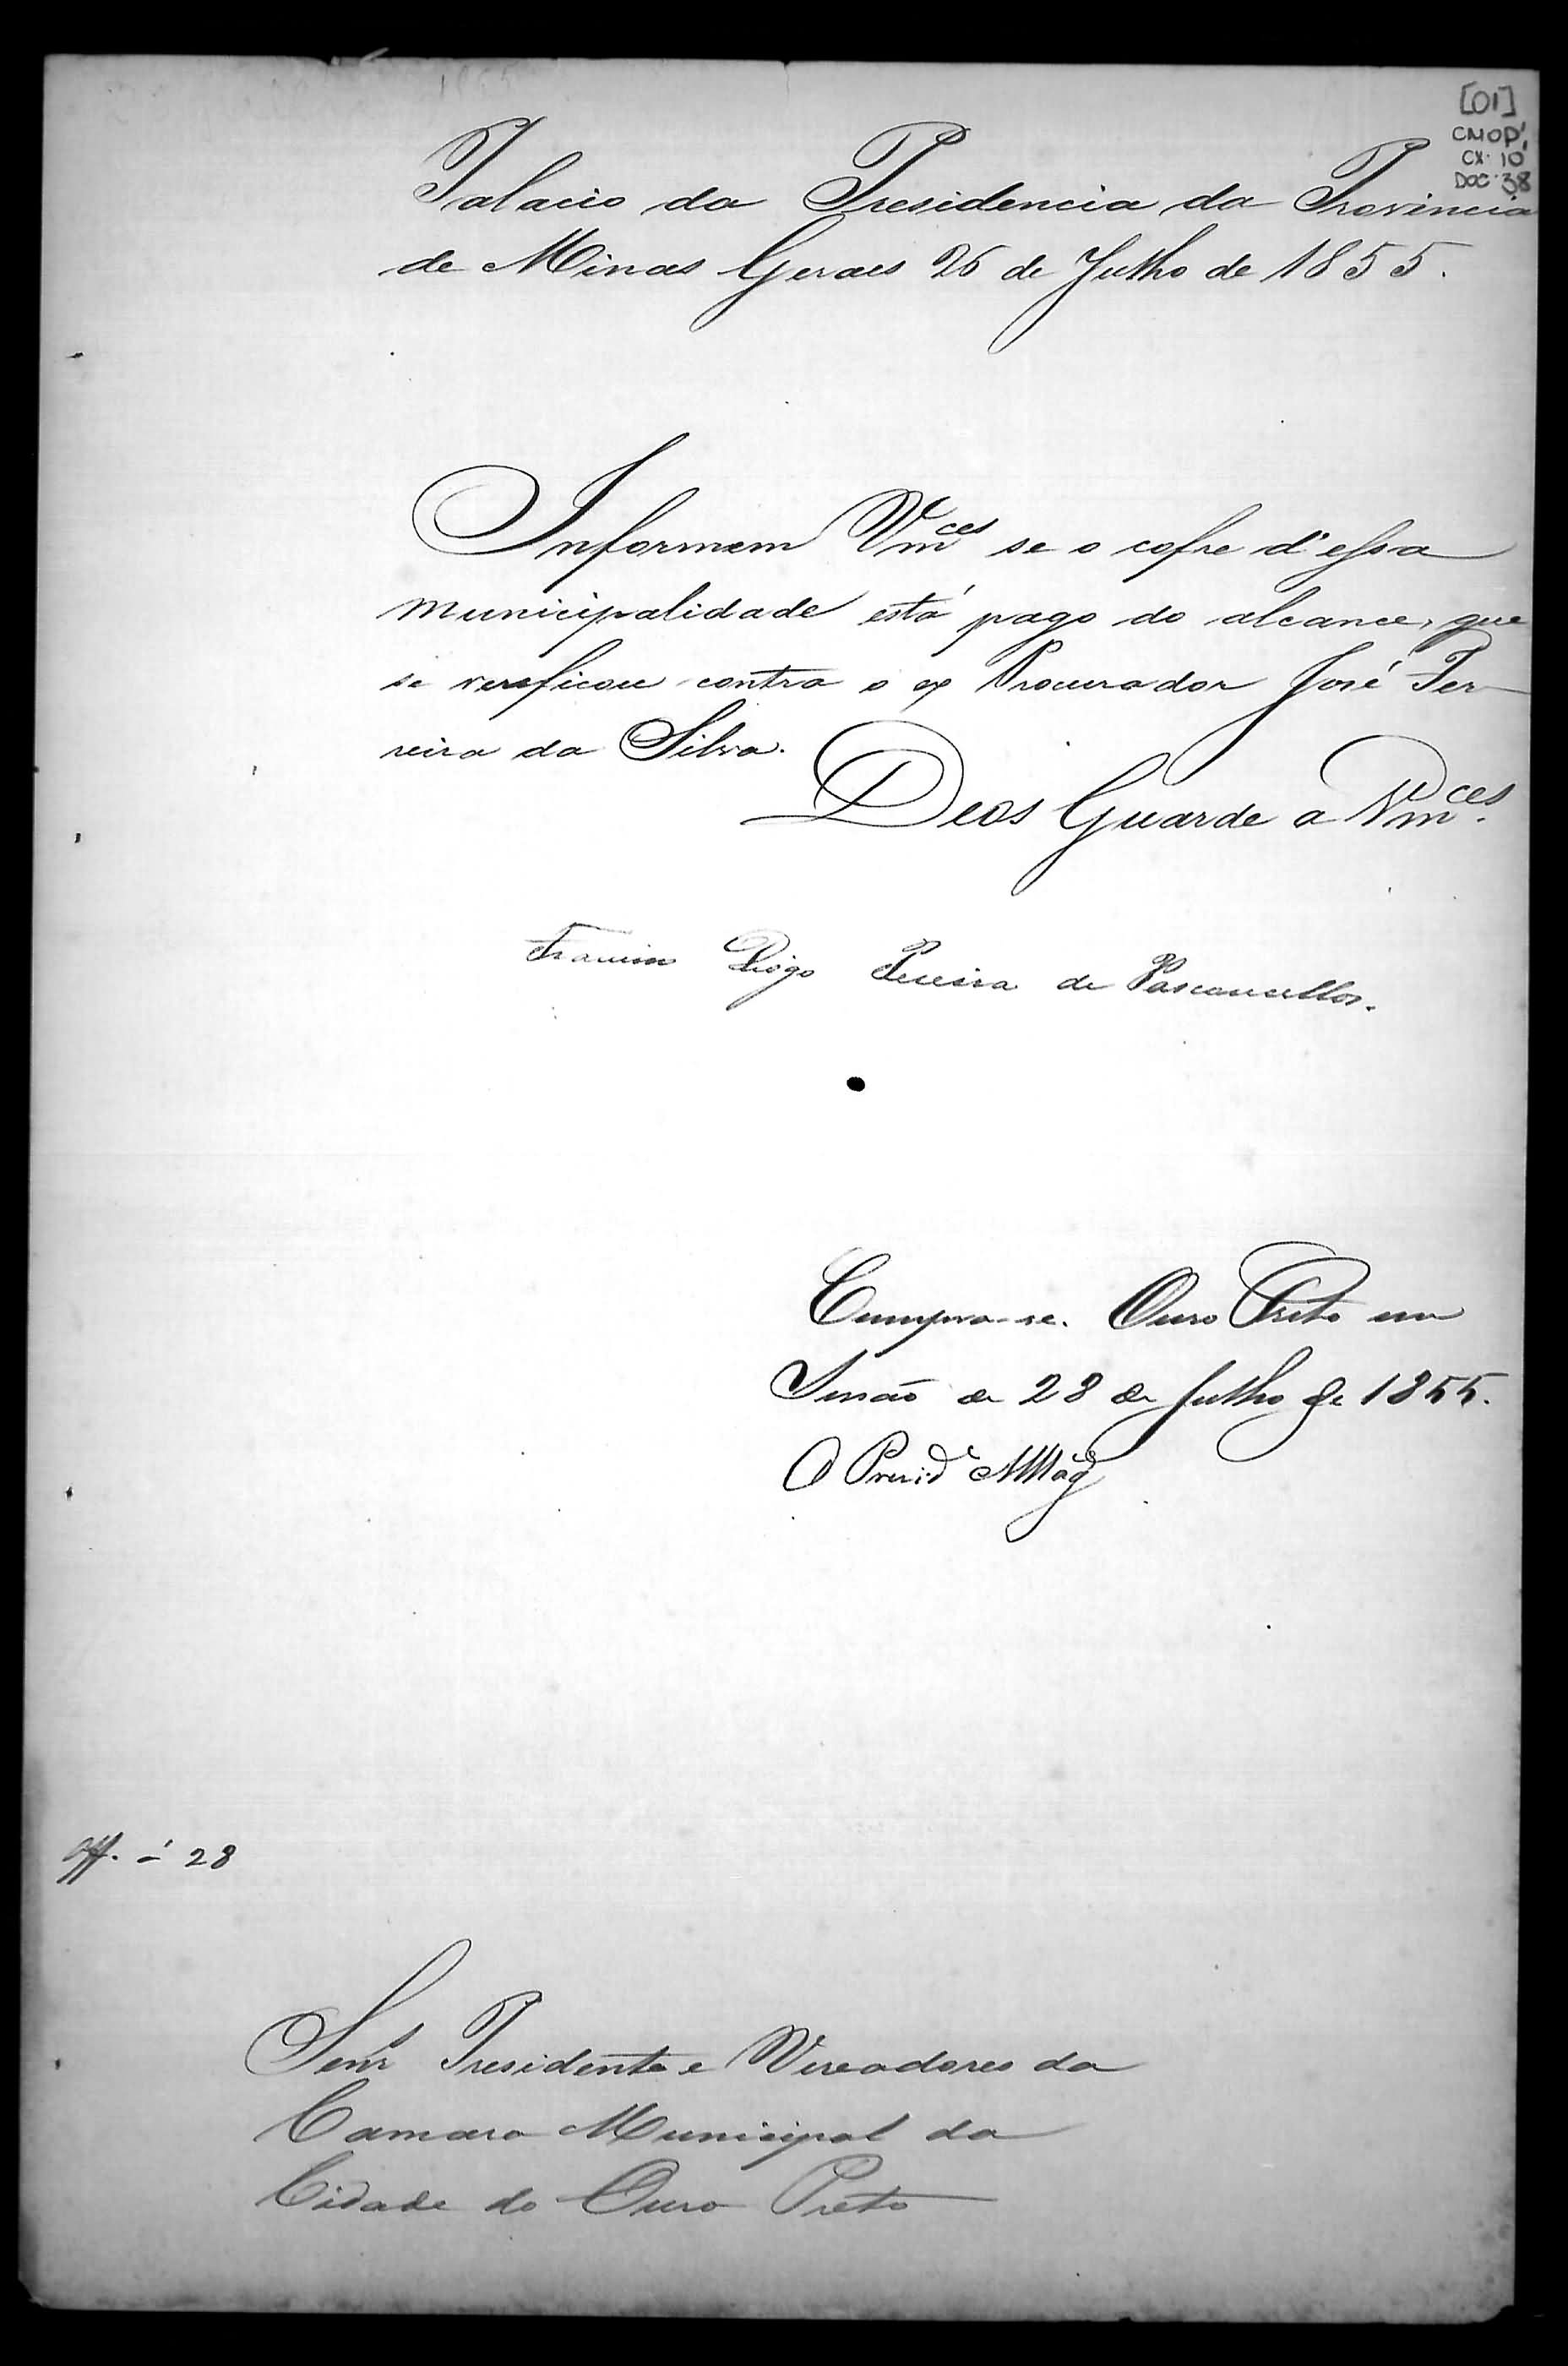 [01]
CMOP,
CX. 10,
DOC. 38
Palacio da Presidencia da Provincia
de Minas Geraes 26 de Julho de 1855.
Informem Vm.ces se o cofre d'essa
Municipalidade está pago do alcance, que
se verificou contra o ex Procurador José Fer-
reira da Silva.
Deos Guarde a Vm.ces
Francisco Diogo Pereira de Vasconcellos.
Cumpra-se. Ouro Preto em
Sessão de 28 de Julho de 1855.
O Presid.e
Off. - 28
Senrs Presidente e Vereadores da
Camara Municipal da
Cidade do Ouro Preto